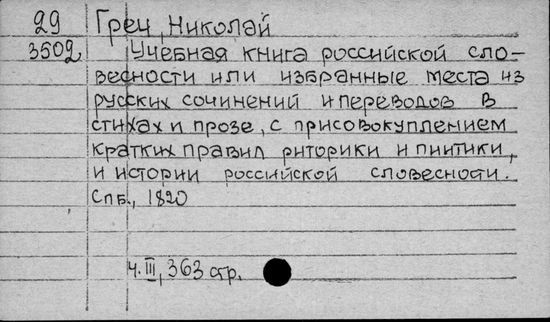 29 Греч, Николай
3502 Учебная книга российской сло-
весности или избранные места из
русских сочинений и переводов в
стихах и прозе, с присовокуплением
кратких правил риторики и пиитики,
и истории российской словесности.
Спб., 1820
ч. III, 363 стр.